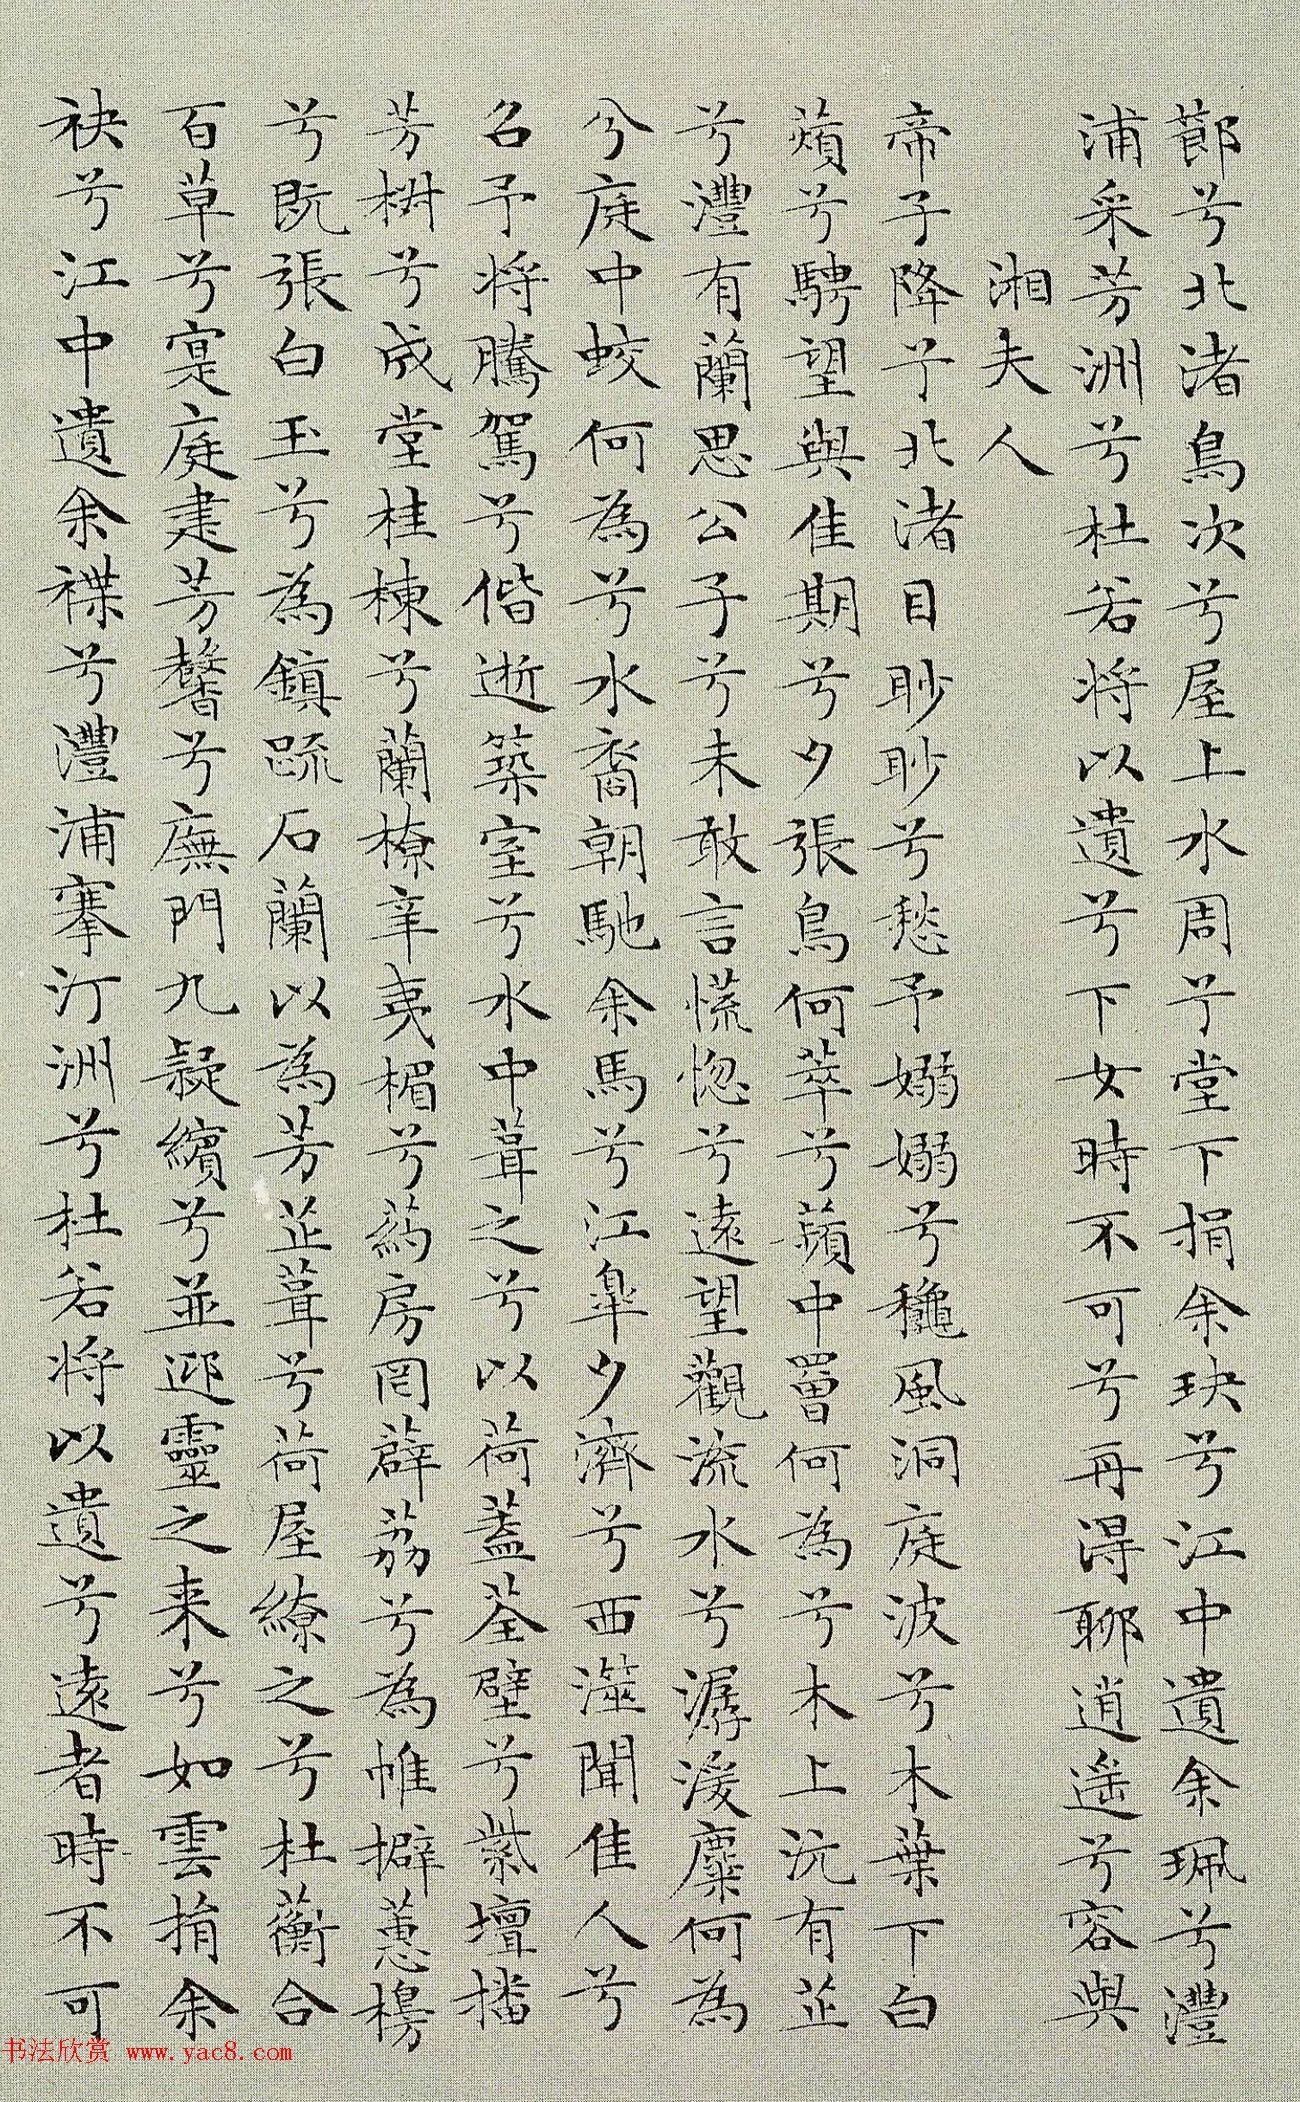 莭兮北渚鳥次兮屋上水周兮堂下捐余玦兮江中遺余珮兮澧
浦采芳洲兮杜若將以遺兮下女時不可兮再得聊逍遥兮容與
湘夫人
帝子降兮北渚目眇眇兮愁予嫋嫋兮龝風洞庭波兮木葉下白
薠兮騁望與佳期兮夕張鳥何萃兮蘋中罾何為兮木上沅有芷
兮澧有蘭思公子兮未敢言慌惚兮遠望觀流水兮潺湲麋何為
兮庭中蛟何為兮水裔朝馳余馬兮江臯夕濟兮西澨聞佳人兮
名予將騰駕兮偕逝築室兮水中葺之兮以荷蓋荃壁兮紫壇播
芳椒兮成堂桂棟兮蘭橑辛夷楣兮葯房罔薜荔兮為帷擗蕙櫋
兮既張白玉兮為鎮疏石蘭以為芳芷葺兮荷屋繚之兮杜蘅合
百草兮寔庭建芳馨兮廡門九疑繽兮並迎靈之来兮如雲捐余
袂兮江中遺余褋兮澧浦搴汀洲兮杜若將以遺兮遠者時不可
书法欣赏 www.yac8.com